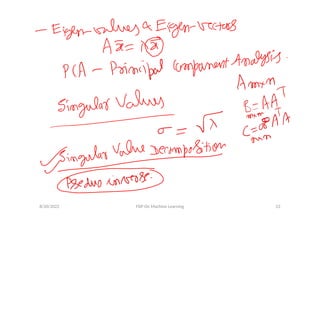 - Eigen-values & Eigen-vectors
A x̄ = λ x̄
PCA - Principal Component Analysis.
Singular Values
σ = √λ
A m×n
B = AAᵀ
m×m
C = AᵀA
n×n
✓ Singular Value Decomposition
Psedus inverse.
8/20/2022 FDP On Machine Learning 22